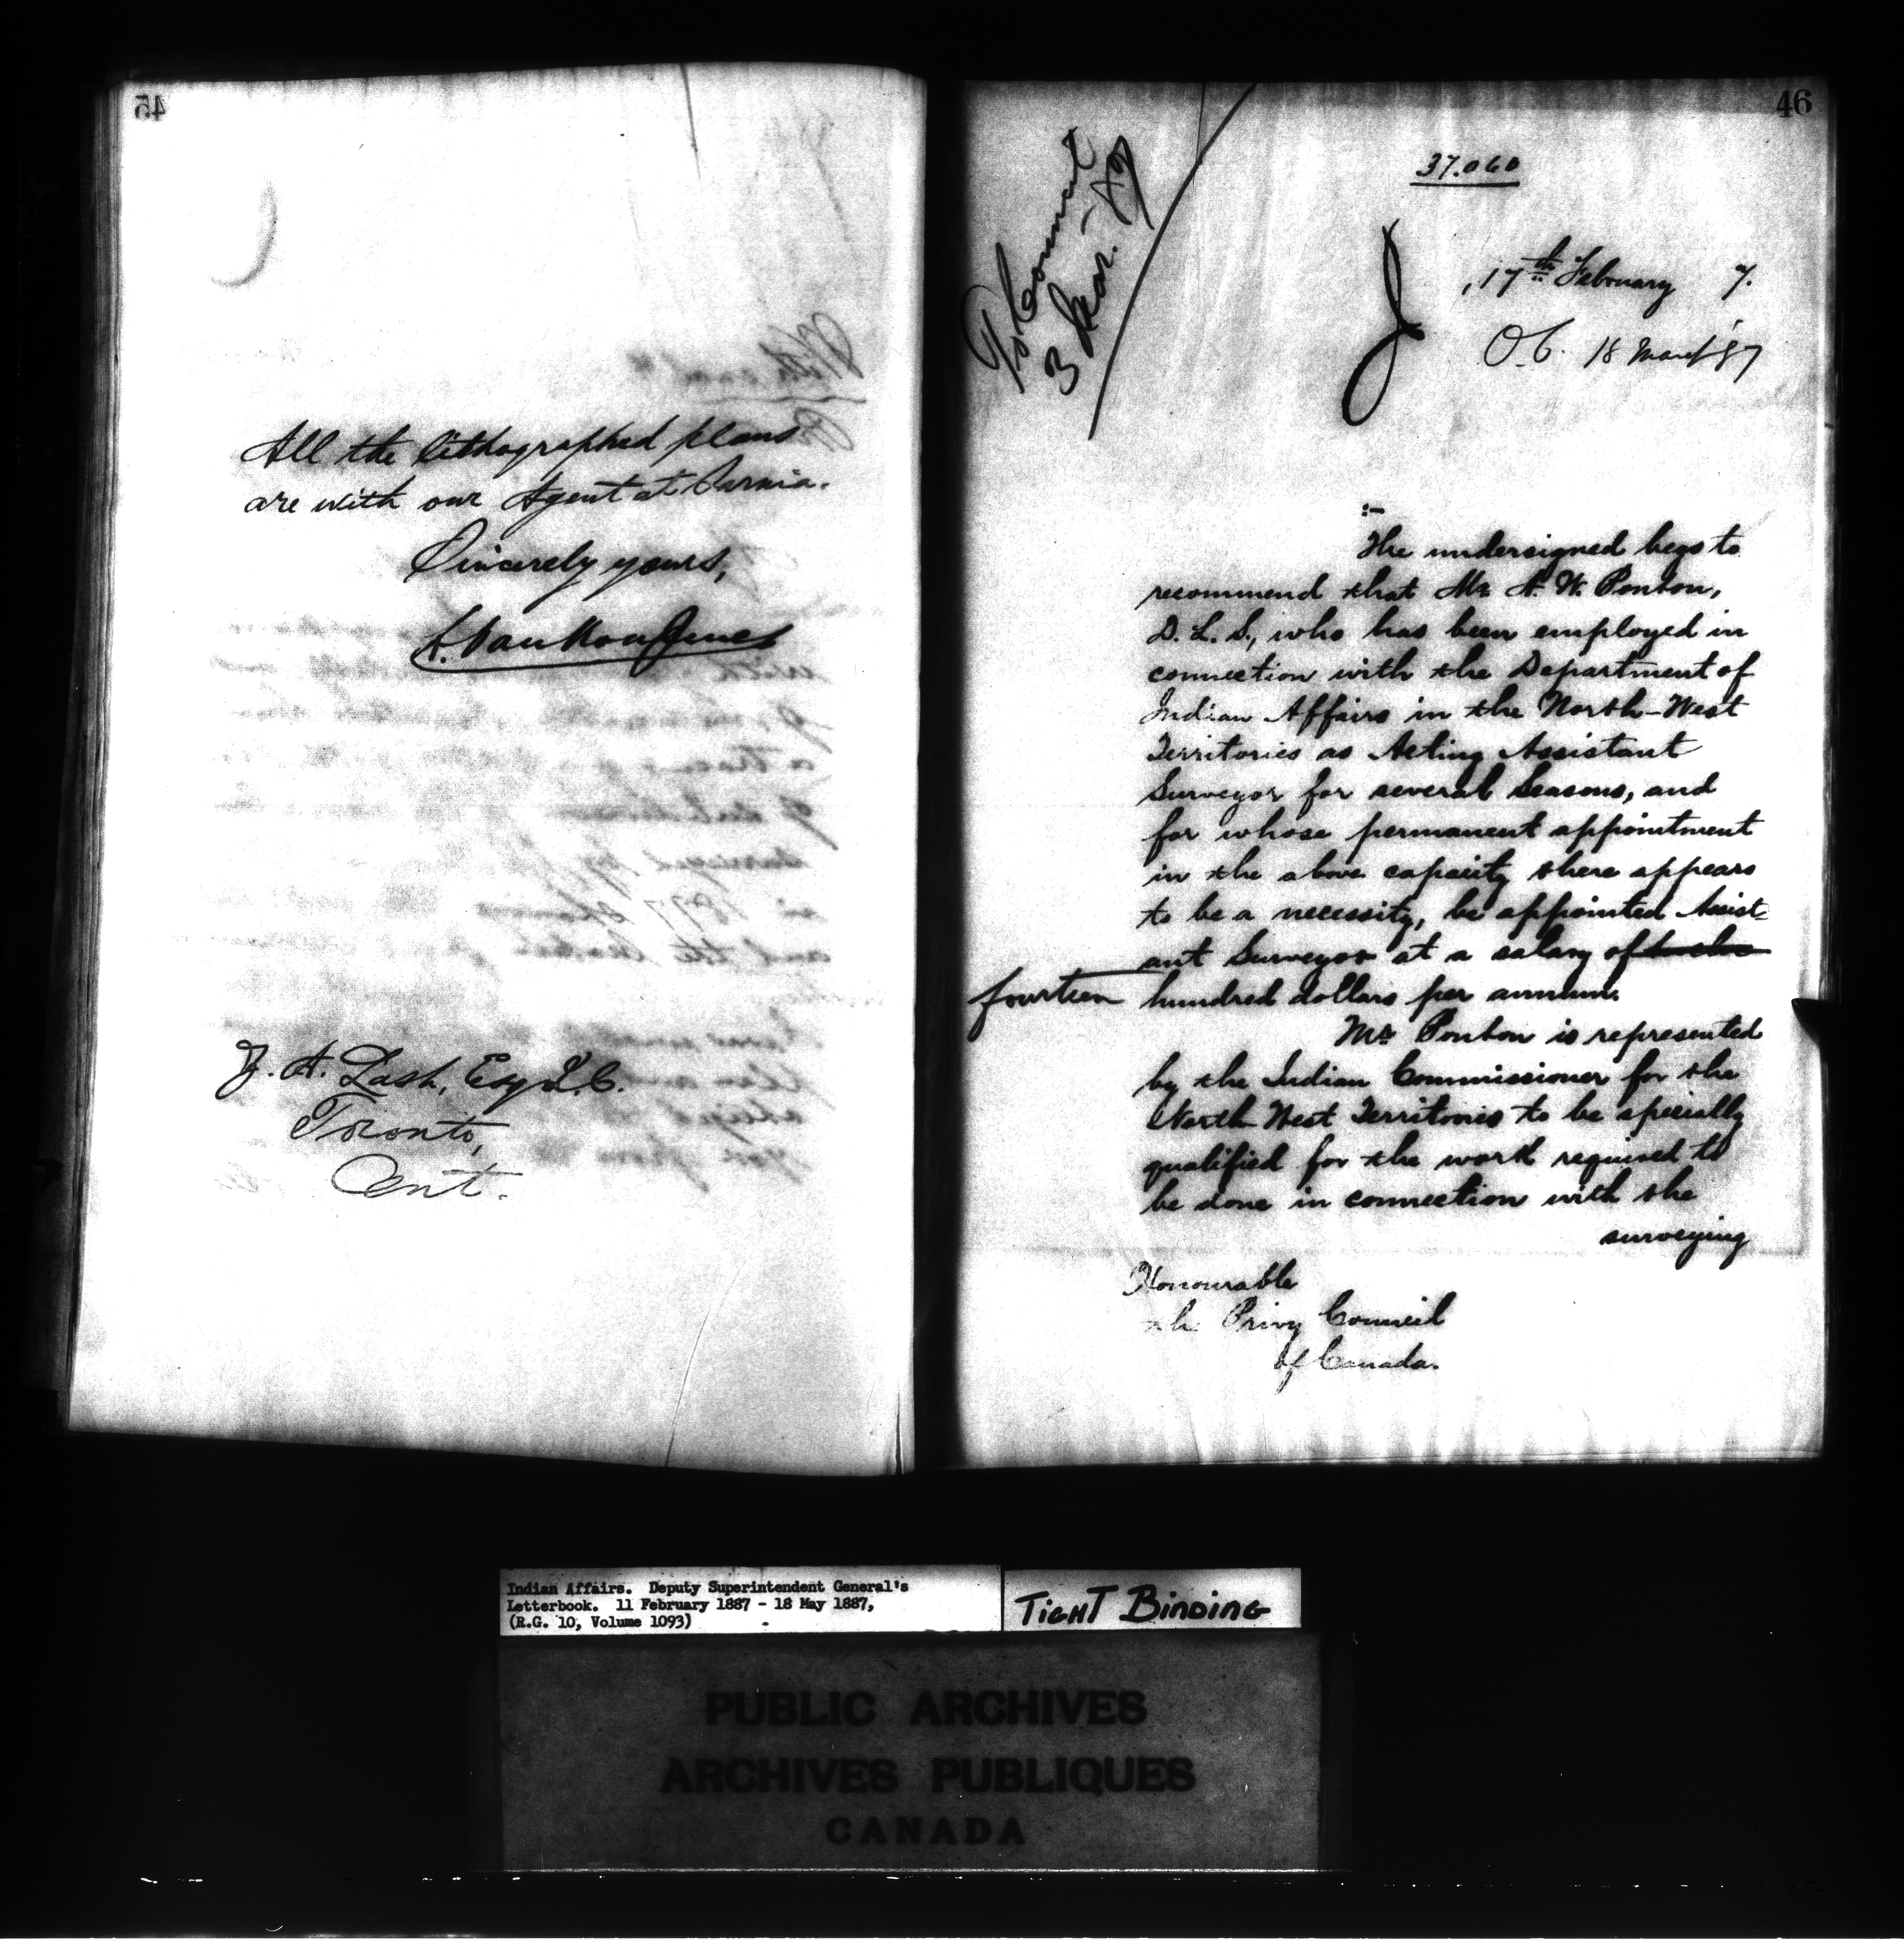 45
All the lithographed plans
are with our Agent at Sarnia.
Sincerely yours,
L. VanKoughnet
Z. A. Lash, Esq Q.C.
Toronto,
Ont.
46
37.060
To Council
3 Mar. 87
17th February 7.
O.C. 18 March '87
:-
The undersigned begs to
recommend that Mr. A. W. Ponton,
D. L. S., who has been employed in
connection with the Department of
Indian Affairs in the North-West
Territories as Acting Assistant
Surveyor for several Seasons, and
for whose permanent appointment
in the above capacity there appears
to be a necessity, be appointed Assist-
ant Surveyor at a salary of twelve
fourteen hundred dollars per annum.
Mr. Ponton is represented
by the Indian Commissioner for the
North West Territories to be specially
qualified for the work required to
be done in connection with the
surveying
Honourable
the Privy Council
of Canada.
Indian Affairs. Deputy Superintendent General's
Letterbook. 11 February 1887 - 18 May 1887,
(R.G. 10, Volume 1093)
TIGHT BINDING
PUBLIC ARCHIVES
ARCHIVES PUBLIQUES
CANADA